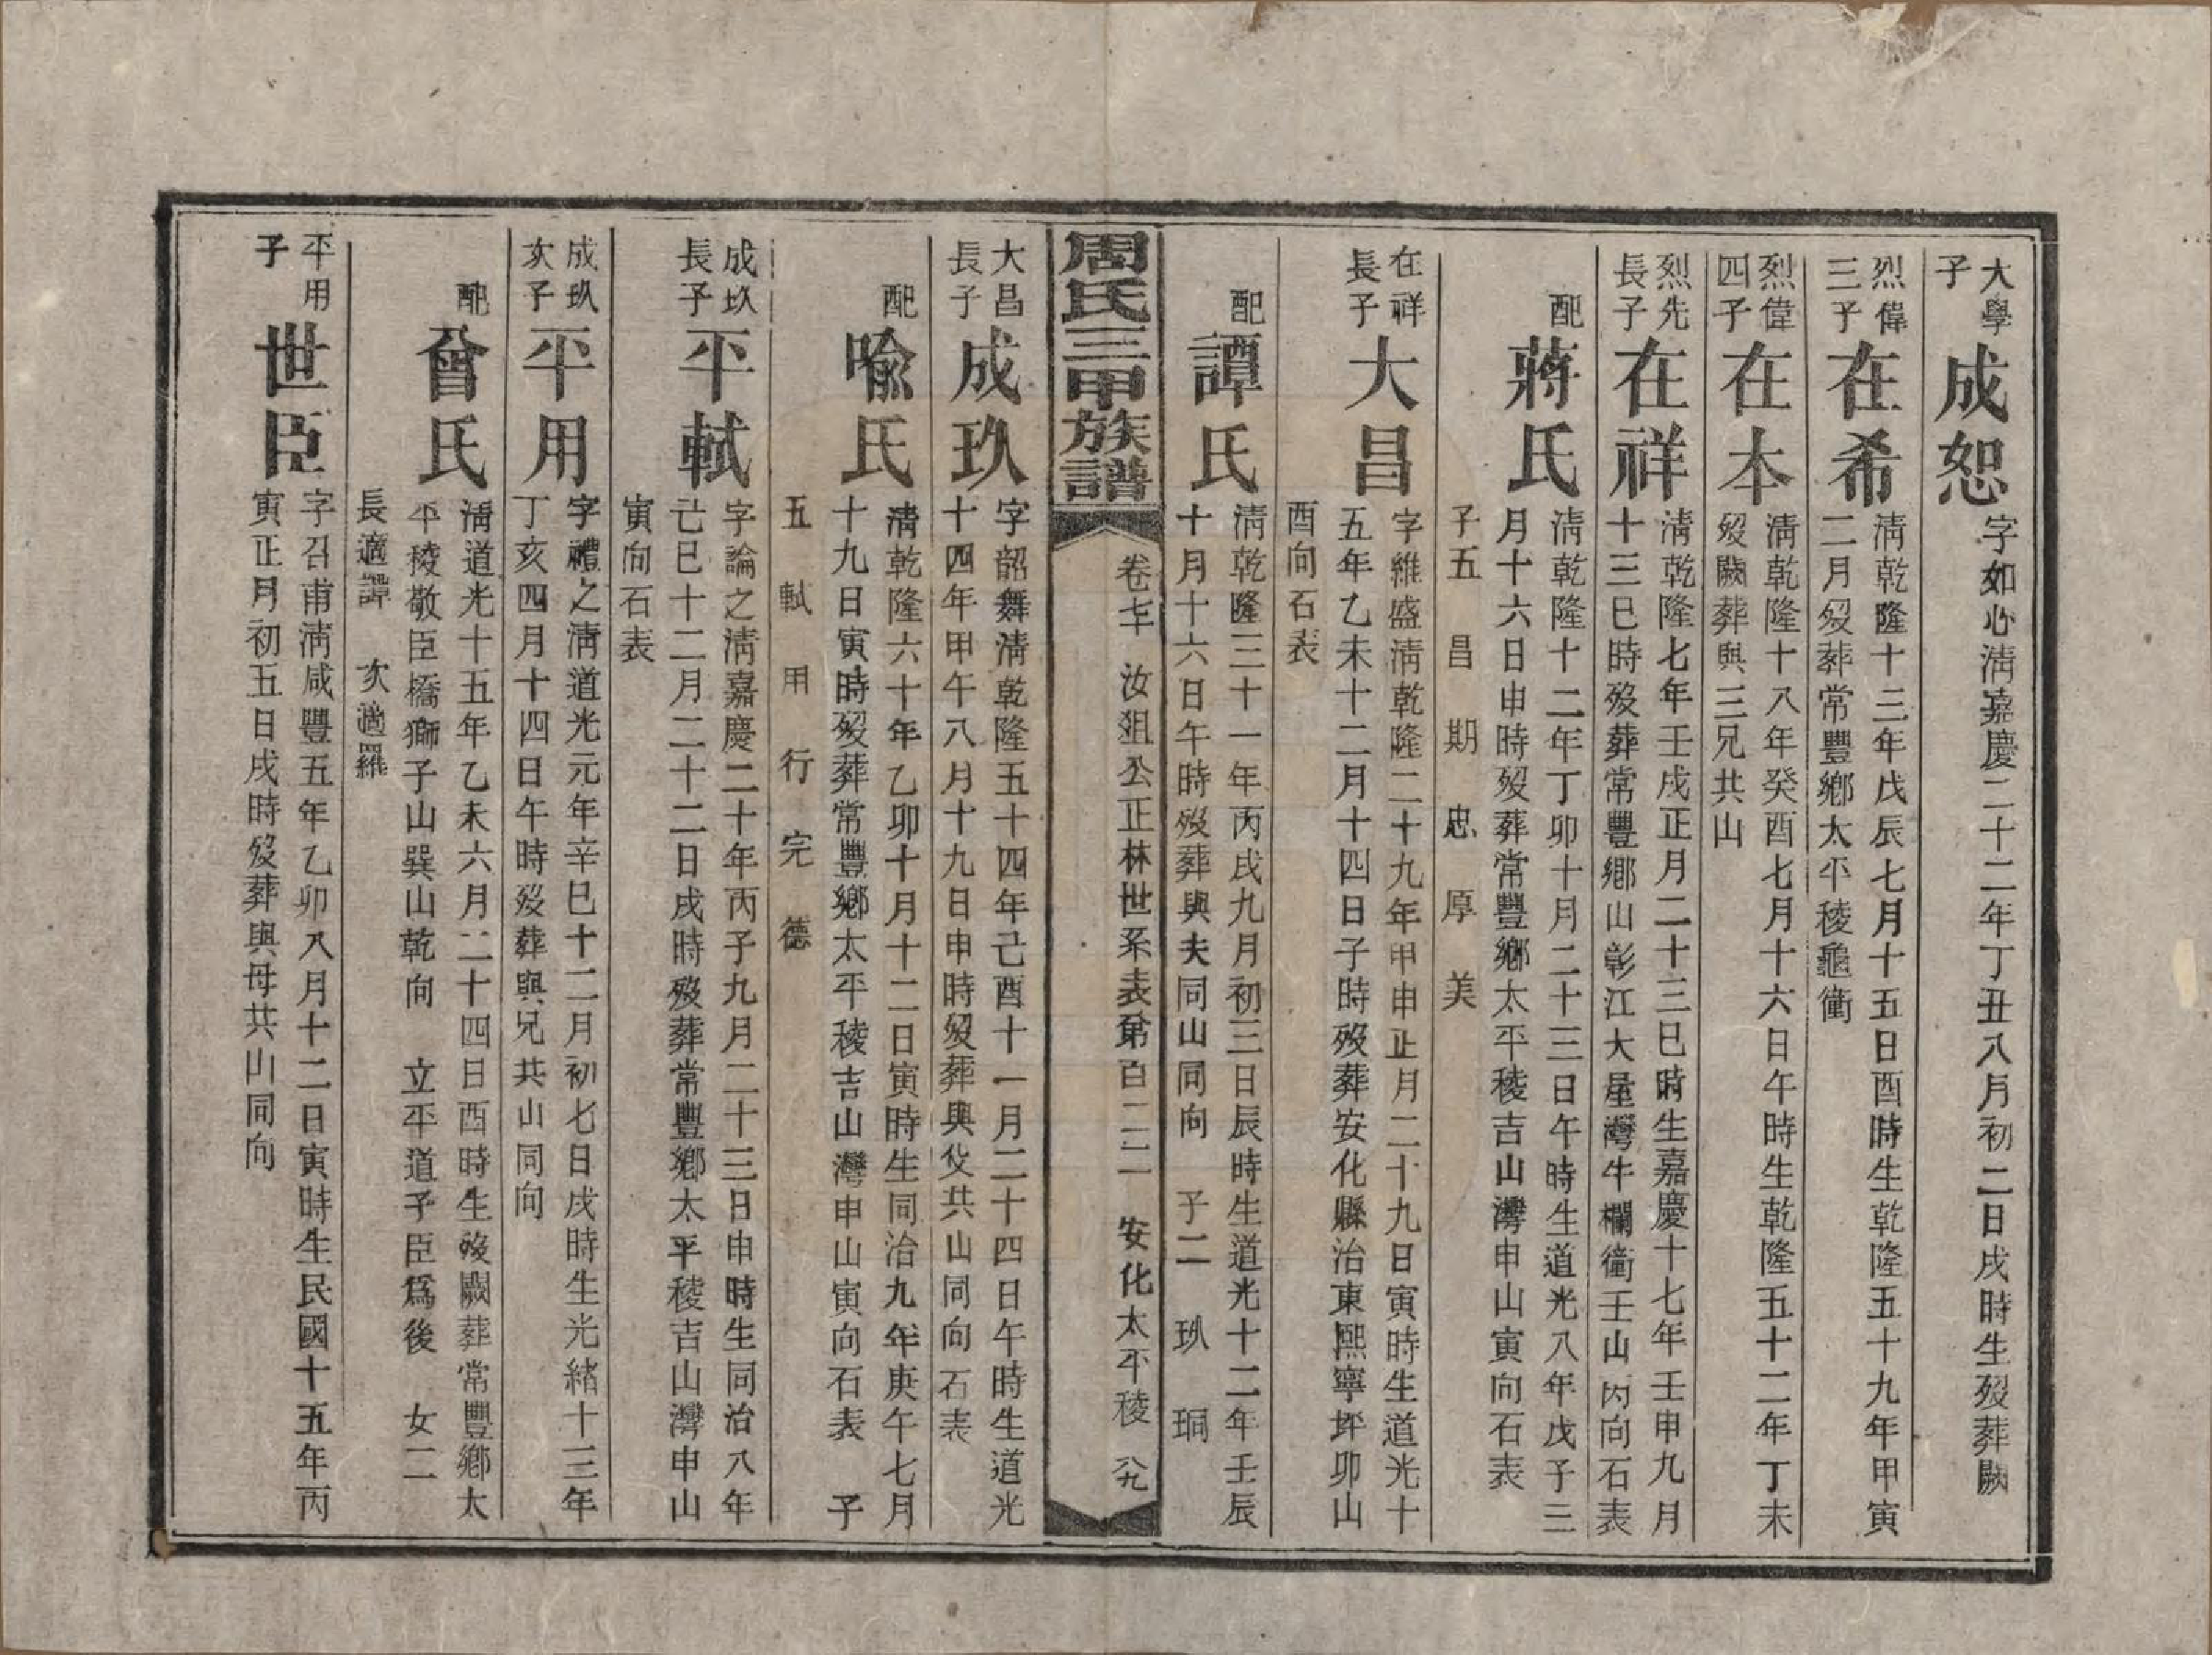 大學
子
成恕
字如心淸嘉慶二十二年丁丑八月初二日戌時生歿葬闕
烈偉
三子
在希
淸乾隆十三年戊辰七月十五日酉時生乾隆五十九年甲寅
二月歿葬常豐鄉太平稜龜衝
烈偉
四子
在本
淸乾隆十八年癸酉七月十六日午時生乾隆五十二年丁未
歿闕葬與三兄共山
烈先
長子
在祥
淸乾隆七年壬戌正月二十三巳時生嘉慶十七年壬申九月
十三巳時歿葬常豐鄉山彰江大星灣牛欄衝壬山丙向石表
配
蔣氏
淸乾隆十二年丁卯十月二十三日午時生道光八年戊子三
月十六日申時歿葬常豐鄉太平稜吉山灣申山寅向石表
子五 昌 期 忠 厚 美
在祥
長子
大昌
字維盛淸乾隆二十九年甲申正月二十九日寅時生道光十
五年乙未十二月十四日子時歿葬安化縣治東熙寧坪卯山
酉向石表
配
譚氏
淸乾隆三十一年丙戌九月初三日辰時生道光十二年壬辰
十月十六日午時歿葬與夫同山同向 子二 玖 珦
周氏三甲族譜
卷七 汝狙公正林世系表第百二二 安化太平稜 八九
大昌
長子
成玖
字韶舞淸乾隆五十四年己酉十一月二十四日午時生道光
十四年甲午八月十九日申時歿葬與父共山同向石表
配
喩氏
淸乾隆六十年乙卯十月十二日寅時生同治九年庚午七月
十九日寅時歿葬常豐鄉太平稜吉山灣申山寅向石表 子
五 軾 用 行 完 德
成玖
長子
平軾
字論之淸嘉慶二十年丙子九月二十三日申時生同治八年
己巳十二月二十二日戌時歿葬常豐鄉太平稜吉山灣申山
寅向石表
成玖
次子
平用
字禮之淸道光元年辛巳十二月初七日戌時生光緒十三年
丁亥四月十四日午時歿葬與兄共山同向
配
曾氏
淸道光十五年乙未六月二十四日酉時生歿闕葬常豐鄉太
平稜敬臣橋獅子山巽山乾向 立平道子臣爲後 女二
長適譚 次適羅
平用
子
世臣
字召甫淸咸豐五年乙卯八月十二日寅時生民國十五年丙
寅正月初五日戌時歿葬與母共山同向